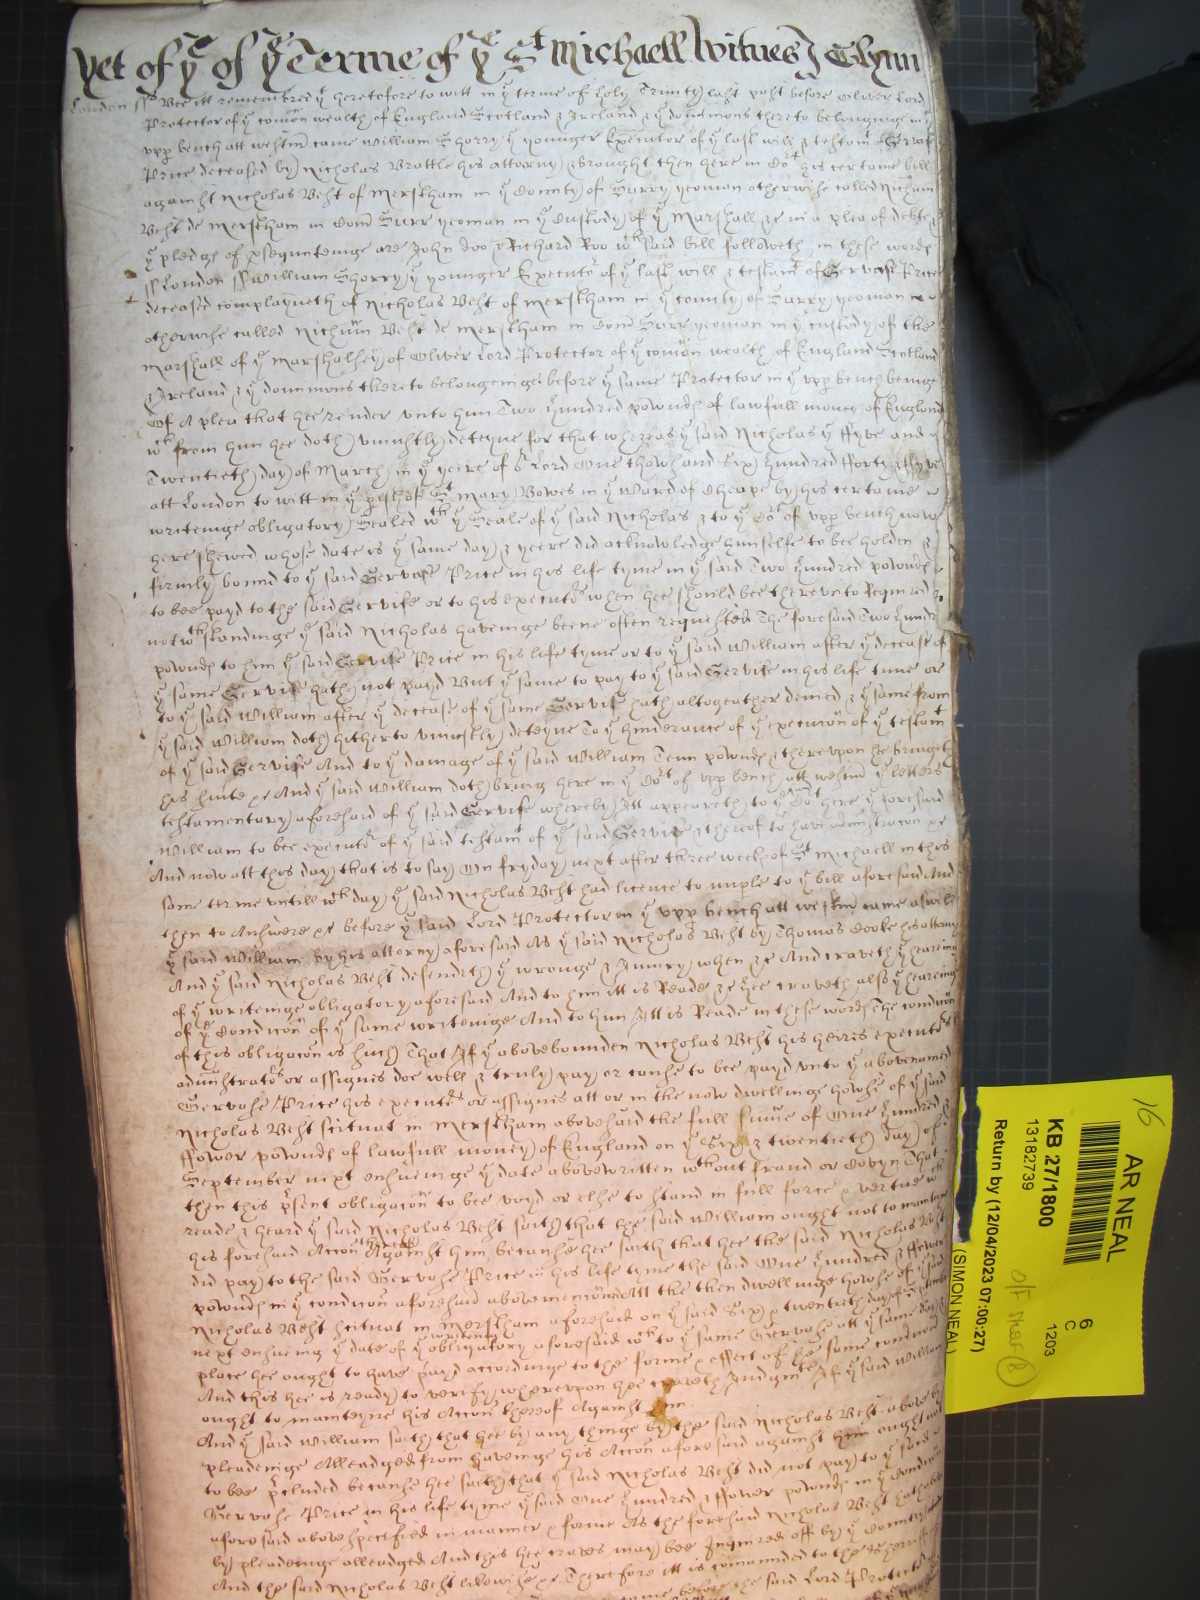 Yet of yͤ of yͤ Terme of yͤ Sᵗ Michaell Witnes J Glynn
London ss Bee itt remembred yᵗ heretofore to witt in yͤ terme of holy Trinity last past before Oliver Lord
Protector of yͤ comon wealth of England Scotland & Ireland & yͤ dominions thereto belonging in yͤ
vpp bench att westm̄ came William Shorry yͤ younger Executor of yͤ last will & testamt of Gervase
Price deceased by Nicholas Brattle his attorny & brought then here in Coʳt his certaine bill
against Nicholas Best of Merstham in yͤ County of Surry yeoman otherwise called Nichūm
Best de Merstham in Com̄ Surr yeoman in yͤ Custody of yͤ Marshall &c in a plea of debte &
yͤ pledgs of psequuteinge are John doo & Richard Roo wᶜʰ said bill followeth in these words
ss London ss William Shorry yͤ younger Executoʳ of yͤ last will & testamᵗ of Gervase Price
deceased complayneth of Nicholas Best of Merstham in yͤ county of Surry yeoman
otherwise called Nichūm Best de Merstham in Com̄ Surr yeoman in yͤ custody of the
marshall of yͤ Marshalsey of Oliver Lord Protector of yͤ comon wealth of England Scotland
& Ireland & yͤ dominions thereto belongeinge before yͤ same Protector in yͤ vpp bench beinge
Of A plea that hee render vnto him Two hundred pownds of lawfull money of England
wᶜʰ from him hee doth vniustly deteyne for that whereas yͤ said Nicholas yͤ ffyve and
Twentieth day of March in yͤ yeere of oʳ Lord One thowsand Six hundred fforty & ffyve
att London to witt in yͤ pish of Sᵗ Mary Bowes in yͤ Ward of Cheape by his certaine
writeinge obligatory Sealed wᵗʰ yͤ Seale of yͤ said Nicholas & to yͤ Coʳt of vpp bench now
here shewed whose date is yͤ same day & yeere did acknowledge himselfe to bee holden &
firmly bound to yͤ said Gervase Price in his life tyme in yͤ said Two hundred pownds
to bee payd to the said Gervise or to his executoʳs when hee should bee therevnto Required
notwᵗʰstandinge yͤ said Nicholas haveinge beene often requested The foresaid Two hundr
pownds to him yͤ said Gervise Price in his life tyme or to yͤ said William after yͤ decease of
yͤ same Gervise hath not payd But yͤ same to pay to yͤ said Gervise in his life time or
to yͤ said William after yͤ decease of yͤ same Gervise hath altogeather denied & yͤ same from
yͤ said William doth hitherto vniustly deteyne To yͤ hinderance of yͤ execucon of yͤ testamᵗ
of yͤ said Gervise And to yͤ damage of yͤ said William Tenn pownds & therevpon he bringes
his suite &c And yͤ said William doth bring here in yͤ Coʳt of vpp bench att westm̄ yͤ letters
testamentary aforesaid of yͤ said Gervise whereby Itt appeareth to yͤ Coʳt here yͤ foresaid
William to bee executoʳ of yͤ said testamᵗ of yͤ said Gervise & thereof to have administracon &c
And now att this day that is to say On fryday next after three weeks of Sᵗ Michaell in this
same terme vntill wᶜʰ day yͤ said Nicholas Best had licence to imple to yͤ bill aforesaid And
then to Answere &c before yͤ said Lord Protector on yͤ vpp bench att westm̄ came aswell
yͤ said William by his attorny aforesaid As yͤ said Nicholas Best by Thomas Cooke his attorny
And yͤ said Nicholas Best defendeth yͤ wronge & Iniury when &c And craveth yͤ heareing
of yͤ writeinge obligatory aforesaid And to him itt is Reade &c hee craveth also yͤ heareing
of yͤ Condicōn of yͤ same writeinge And to him Itt is Reade in these words The condicōn
of this obligacōn is such That If yͤ abovebounden Nicholas Best his heires executoʳs
administratoʳs or assignes doe well & truly pay or cause to bee payd vnto yͤ abovenamed
Gervase Price his executoʳs or assignes att or in the now dwellinge howse of yͤ said
Nicholas Best scituat in Merstham abovesaid the full summe of One hundred &
ffower pownds of lawfull money of England on yͤ Six & twentieth day of
September next ensueinge yͤ date abovewritten wᵗʰout fraud or Covyn That
then this psent obligacōn to bee voyd or else to stand in full force & vertue wᶜʰ
reade & heard yͤ said Nicholas Best saith that the said William ought not to mainteyne
his foresaid Accōn thereof Against him because hee saith that hee the said Nicholas Best
did pay to the said Gervase Price in his life tyme the said One hundred & ffower
pownds in yͤ condicōn aforesaid abovemencioned Att the then dwellinge howse of yͤ said
Nicholas Best scituat in Merstham aforesaid on yͤ said Six & twentieth day of September
next ensueing yͤ date of yͤ writeinge obligatory aforesaid wᶜʰ to yͤ same Gervase att yͤ same day &
place hee ought to have payd accordinge to the forme & effect of the same condicōn
And this hee is ready to verify wherevpon hee craveth Iudgmᵗ If yͤ said William
ought to mainteyne his Accōn thereof Against him.
And yͤ said William saith that hee by any thinge by the said Nicholas Best above by
pleadeinge Alleadged from haveinge his Accōn aforesaid against him ought not
to bee pcluded because hee saith that yͤ said Nicholas Best did not pay to yͤ said
Gervase Price in his life tyme yͤ said One hundred & ffower pownds in yͤ Condicōn
aforesaid above specified in manner & forme As the foresaid Nicholas Best hath above
by pleadeinge alleadged And this hee craves may bee Inquired off by yͤ Country
And the said Nicholas Best likewise &c Therefore itt is comanded to the Sherriff
before the said Lord Protector
16
AR NEAL
KB 27/1800
13182739
Return by (12/04/2023 07:00:27)
(SIMON NEAL)
6
C
1203